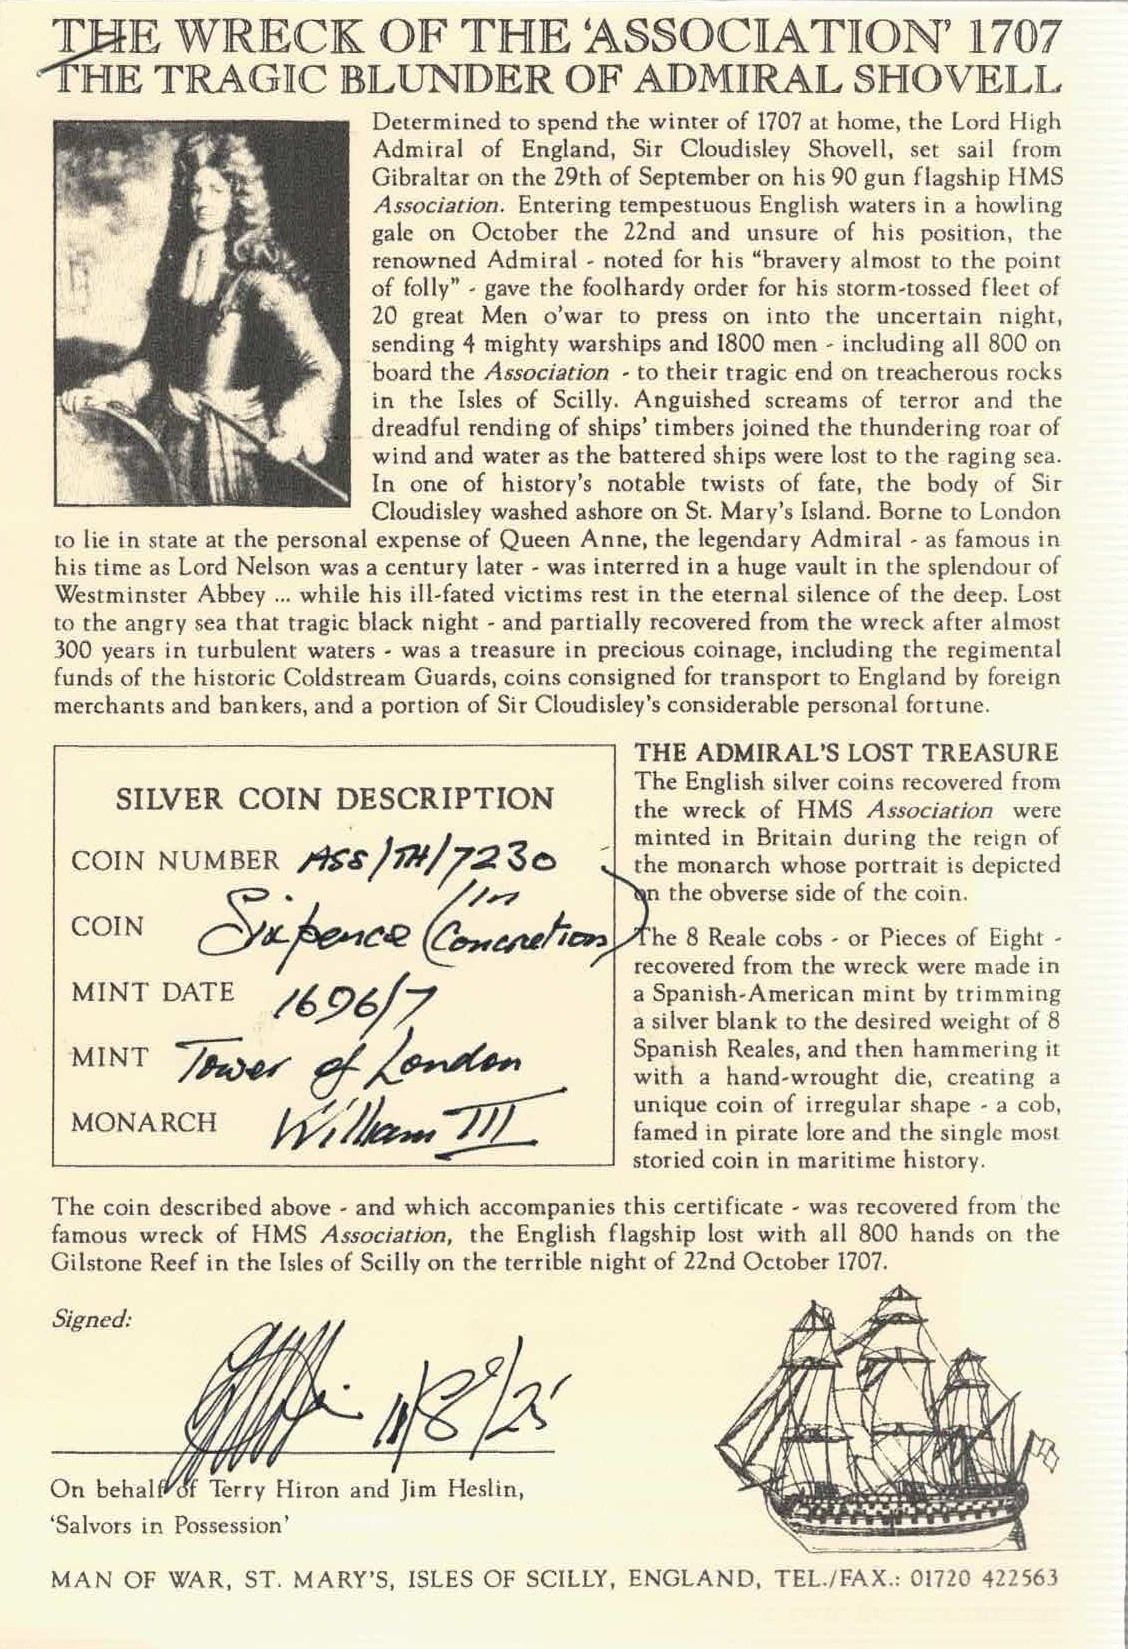 THE WRECK OF THE ‘ASSOCIATION’ 1707
THE TRAGIC BLUNDER OF ADMIRAL SHOVELL
Determined to spend the winter of 1707 at home, the Lord High
Admiral of England, Sir Cloudisley Shovell, set sail from
Gibraltar on the 29th of September on his 90 gun flagship HMS
Association. Entering tempestuous English waters in a howling
gale on October the 22nd and unsure of his position, the
renowned Admiral - noted for his “bravery almost to the point
of folly” - gave the foolhardy order for his storm-tossed fleet of
20 great Men o’war to press on into the uncertain night,
sending 4 mighty warships and 1800 men - including all 800 on
board the Association - to their tragic end on treacherous rocks
in the Isles of Scilly. Anguished screams of terror and the
dreadful rending of ships’ timbers joined the thundering roar of
wind and water as the battered ships were lost to the raging sea.
In one of history’s notable twists of fate, the body of Sir
Cloudisley washed ashore on St. Mary’s Island. Borne to London
to lie in state at the personal expense of Queen Anne, the legendary Admiral - as famous in
his time as Lord Nelson was a century later - was interred in a huge vault in the splendour of
Westminster Abbey ... while his ill-fated victims rest in the eternal silence of the deep. Lost
to the angry sea that tragic black night - and partially recovered from the wreck after almost
300 years in turbulent waters - was a treasure in precious coinage, including the regimental
funds of the historic Coldstream Guards, coins consigned for transport to England by foreign
merchants and bankers, and a portion of Sir Cloudisley’s considerable personal fortune.
SILVER COIN DESCRIPTION
COIN NUMBER ASS/TH/7230
COIN Sixpence (in Concretion)
MINT DATE 1696/7
MINT Tower of London
MONARCH William III
THE ADMIRAL’S LOST TREASURE
The English silver coins recovered from
the wreck of HMS Association were
minted in Britain during the reign of
the monarch whose portrait is depicted
on the obverse side of the coin.
The 8 Reale cobs - or Pieces of Eight -
recovered from the wreck were made in
a Spanish-American mint by trimming
a silver blank to the desired weight of 8
Spanish Reales, and then hammering it
with a hand-wrought die, creating a
unique coin of irregular shape - a cob,
famed in pirate lore and the single most
storied coin in maritime history.
The coin described above - and which accompanies this certificate - was recovered from the
famous wreck of HMS Association, the English flagship lost with all 800 hands on the
Gilstone Reef in the Isles of Scilly on the terrible night of 22nd October 1707.
Signed:
On behalf of Terry Hiron and Jim Heslin,
‘Salvors in Possession’
MAN OF WAR, ST. MARY’S, ISLES OF SCILLY, ENGLAND, TEL./FAX.: 01720 422563